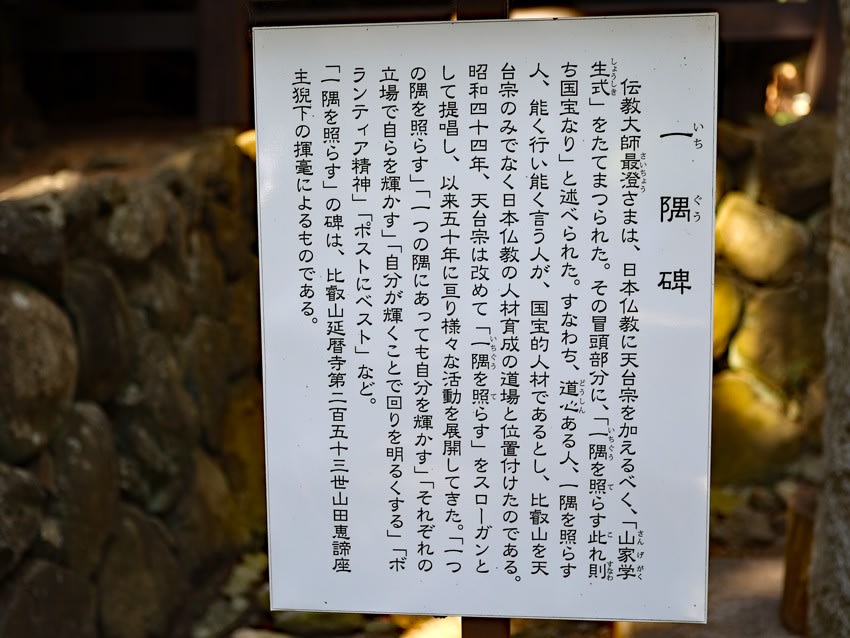 一隅碑
伝教大師最澄さまは、日本仏教に天台宗を加えるべく、「山家学
生式」をたてまつられた。その冒頭部分に、「一隅を照らす此れ則
ち国宝なり」と述べられた。すなわち、道心ある人、一隅を照らす
人、能く行い能く言う人が、国宝的人材であるとし、比叡山を天
台宗のみでなく日本仏教の人材育成の道場と位置付けたのである。
昭和四十四年、天台宗は改めて「一隅を照らす」をスローガンと
して提唱し、以来五十年に亘り様々な活動を展開してきた。「一つ
の隅を照らす」「一つの隅にあっても自分を輝かす」「それぞれの
立場で自らを輝かす」「自分が輝くことで回りを明るくする」「ボ
ランティア精神」「ポストにベスト」など。
「一隅を照らす」の碑は、比叡山延暦寺第二百五十三世山田恵諦座
主猊下の揮毫によるものである。